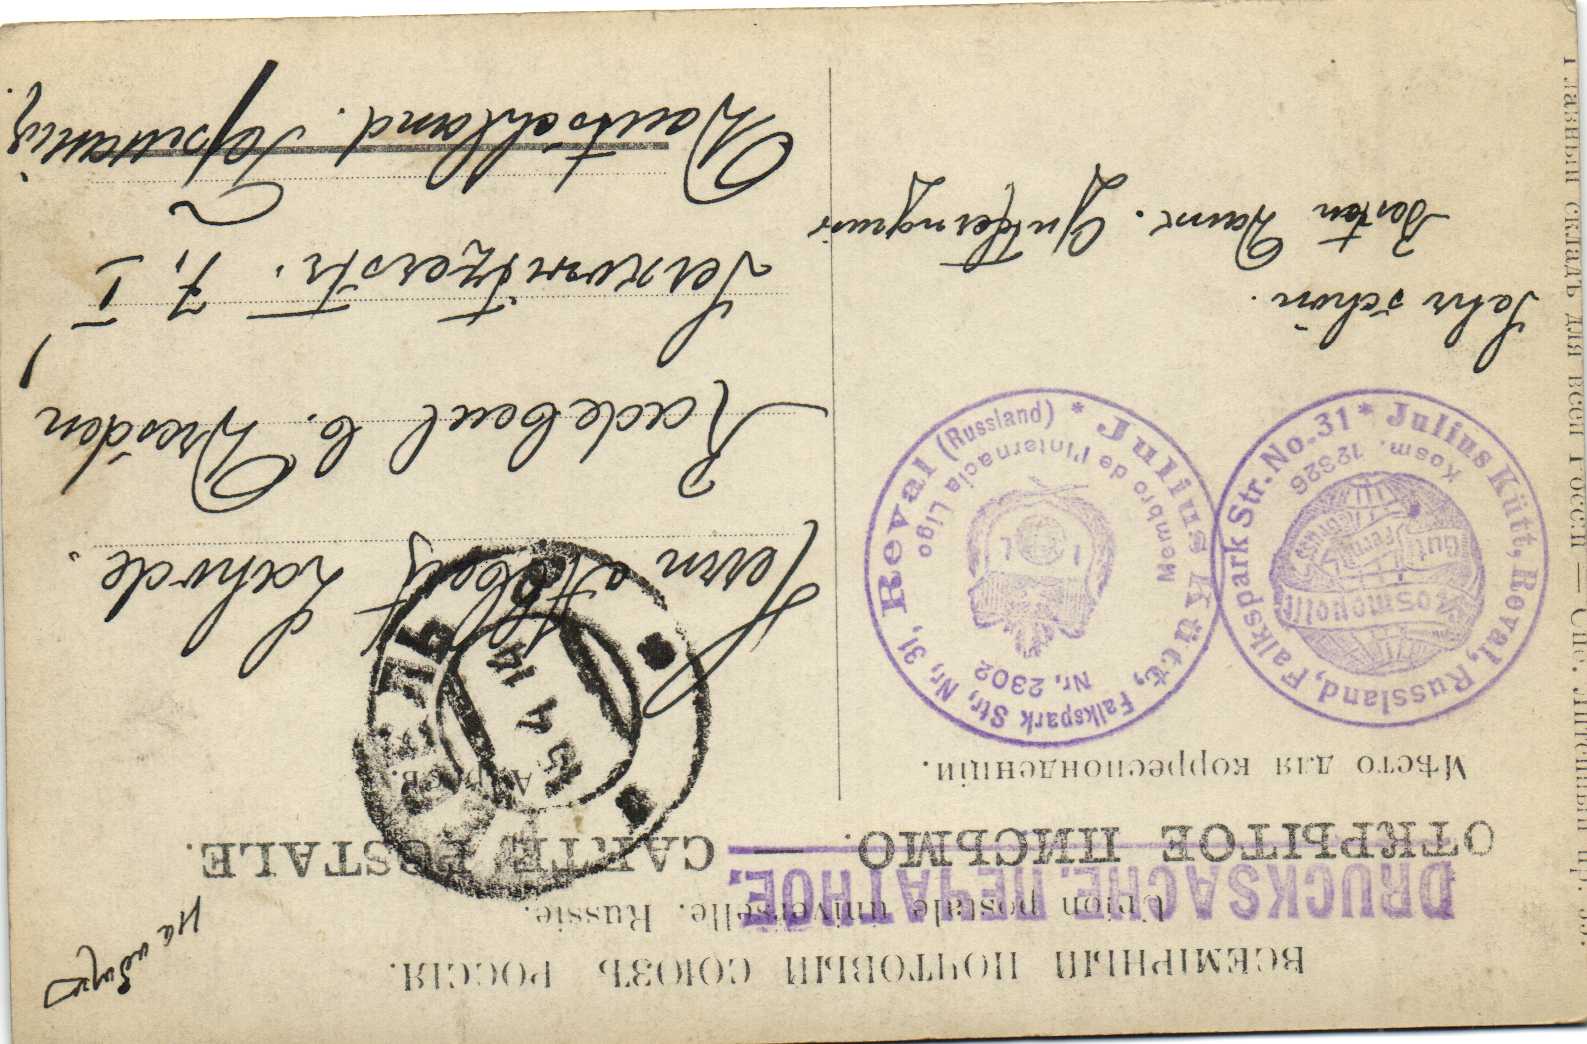 ВСЕМІРНЫЙ ПОЧТОВЫЙ СОЮЗЪ. РОССІЯ.
Union postale universelle. Russie.
DRUCKSACHE. ПЕЧАТНОЕ.
ОТКРЫТОЕ ПИСЬМО. — CARTE POSTALE.
Мѣсто для корреспонденціи.
Julius Kütt, Reval, Russland, Falkspark Str. No. 31 *
Kosm. 12326
Kosmopolit
Julius Kütt, Falkspark Str, Nr, 31, Reval (Russland) *
Membro de l'Internacia Ligo
Nr, 2302
I L
Sehr schön.
Besten Dank.
5 4 14
Herrn Albert
Radebeul b. Dresden
7, I
Deutschland.
Главный складъ для всей Россіи — Спб. Литейный пр.